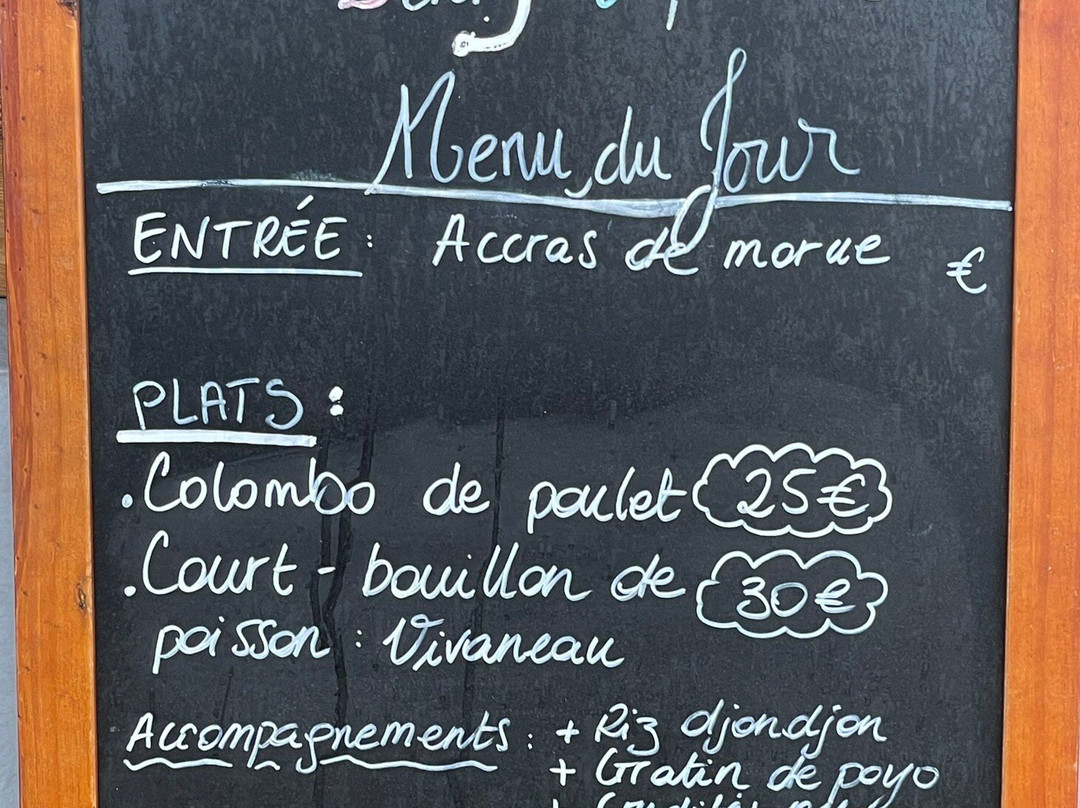 Menu du Jour
ENTRÉE : Accras de morue €
PLATS :
.Colombo de poulet 25€
.Court-bouillon de 30€
poisson : Vivaneau
Accompagnements : + Riz djondjon
+ Gratin de poyo